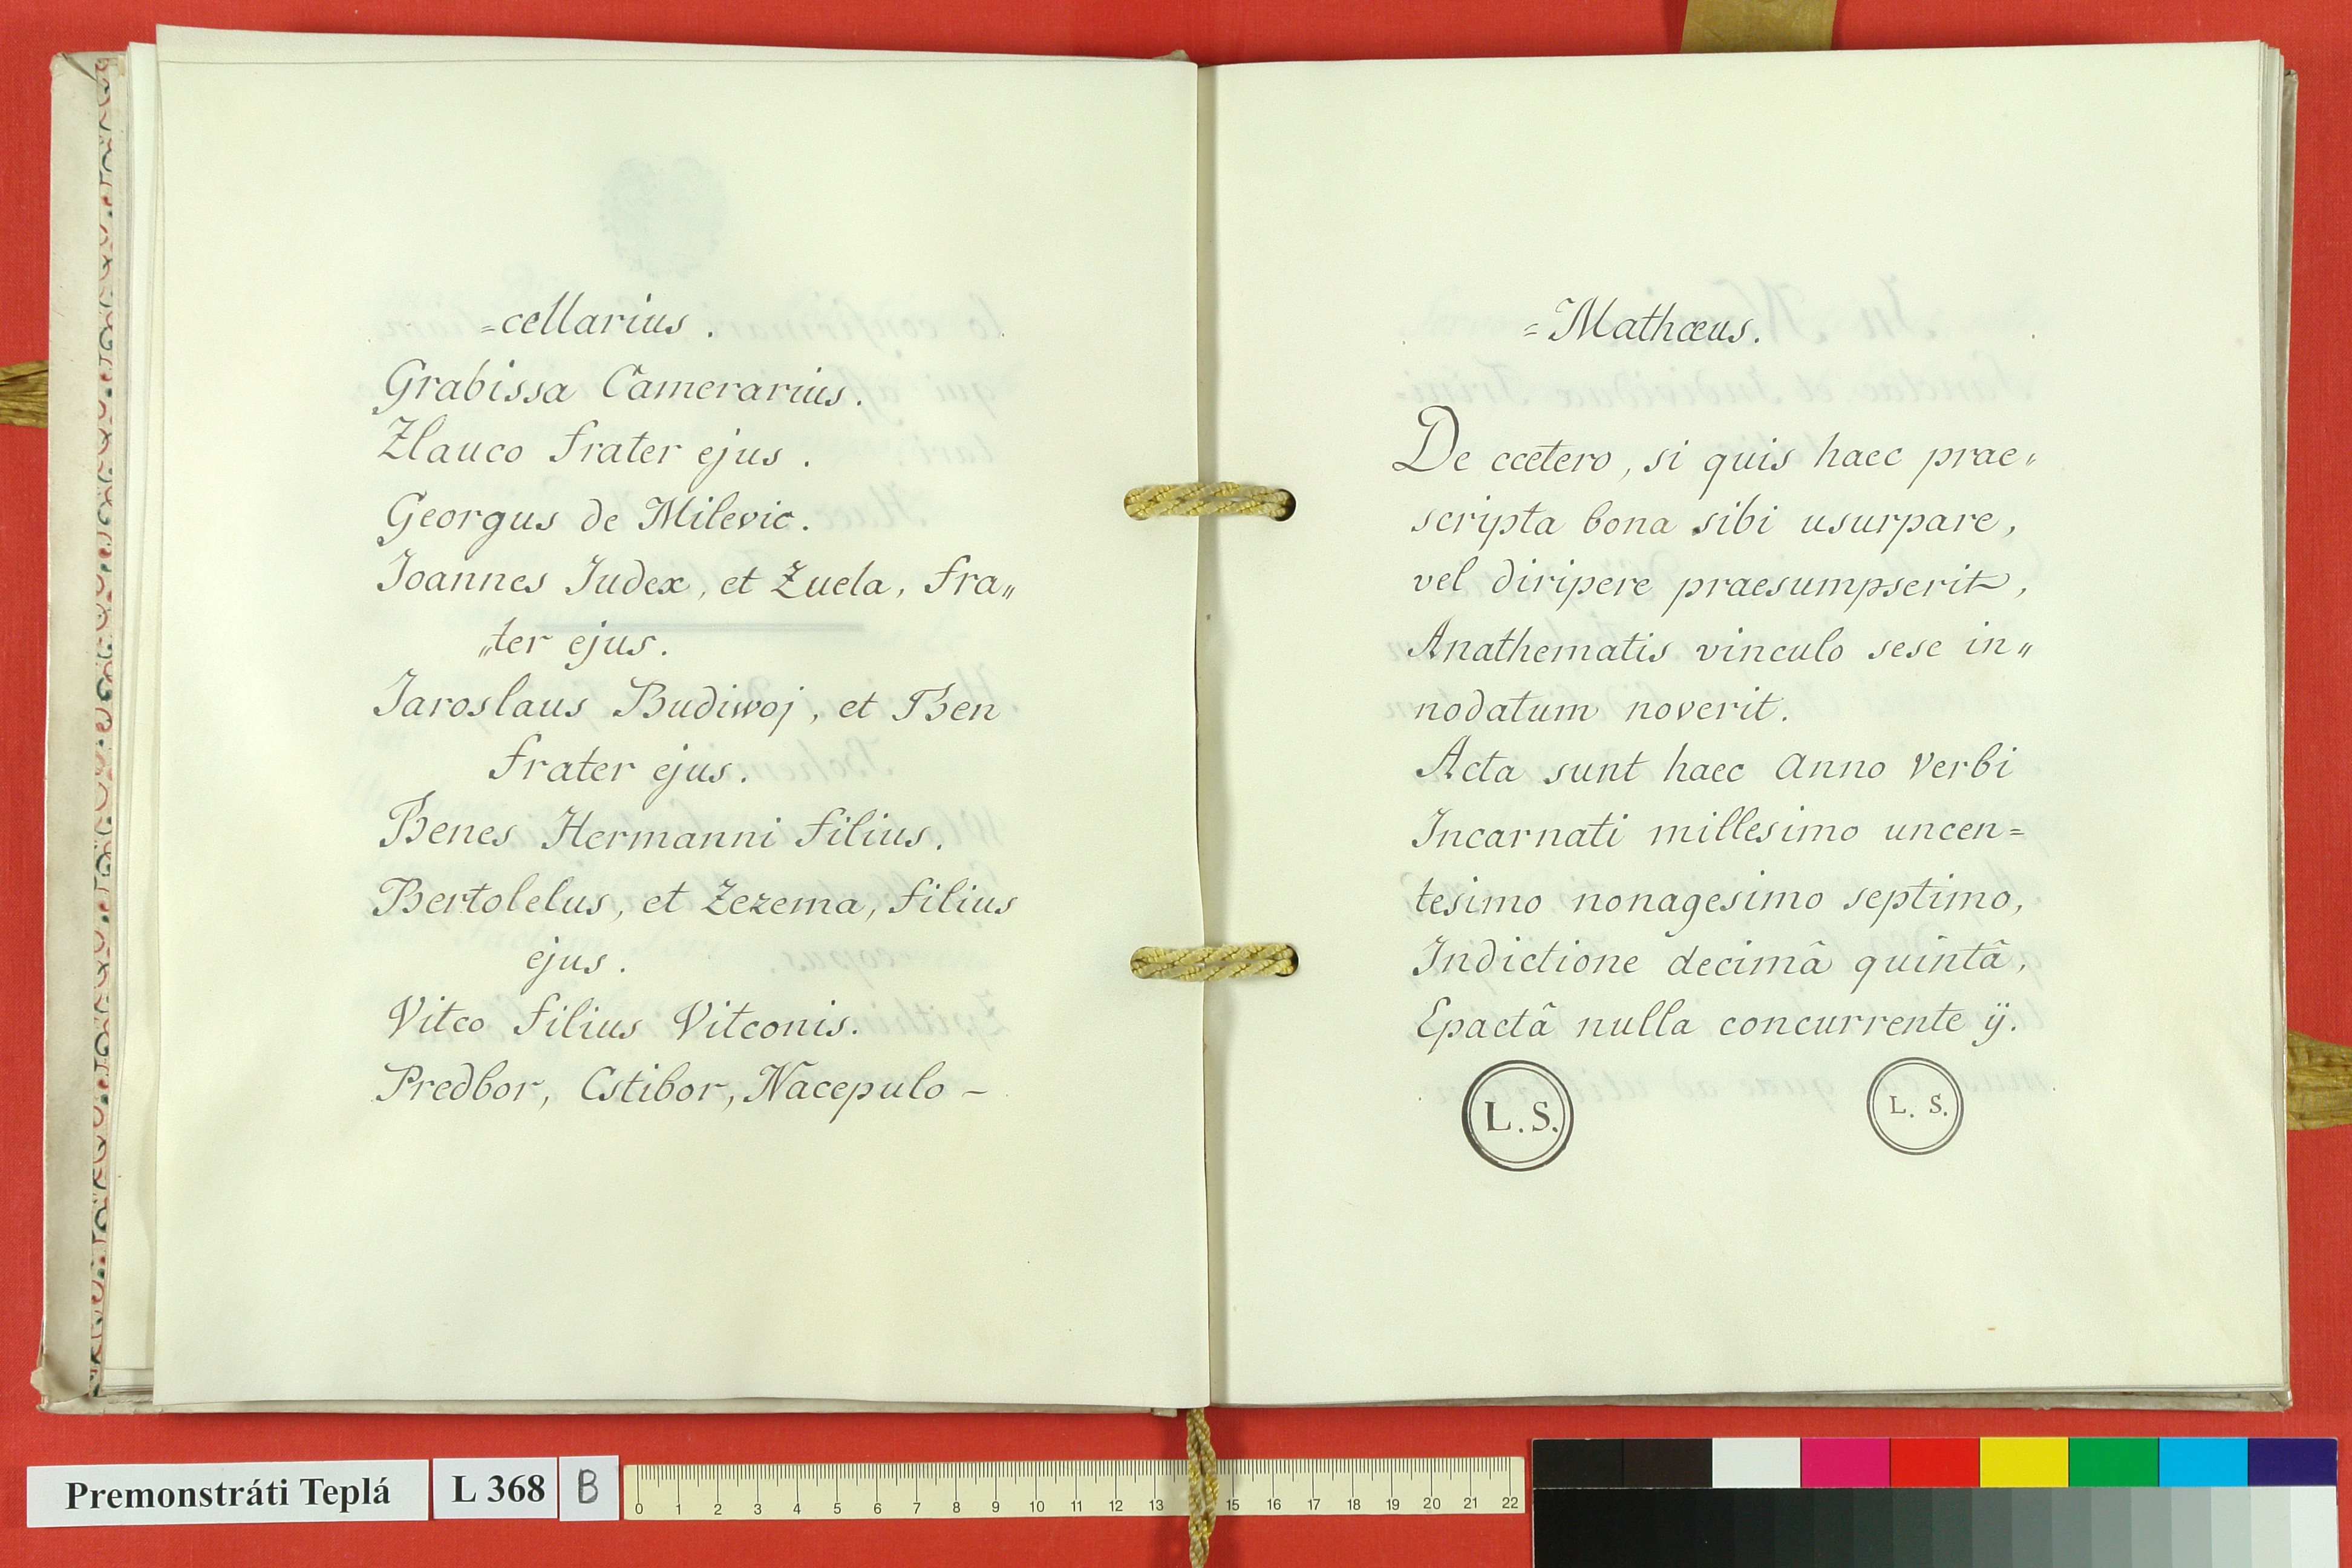 =cellarius.
Grabissa Camerarius.
Zlauco frater ejus.
Georgus de Milevic.
Joannes Judex, et Zuela, fra„
„ter ejus.
Jaroslaus Budiwoj, et Ben
frater ejus.
Benes Hermanni filius.
Bertolelus, et Zezema, filius
ejus.
Vitco filius Vitconis.
Predbor, Cstibor, Nacepulo –
=Mathæus.
De cœtero, si quis haec prae„
scripta bona sibi usurpare,
vel diripere praesumpserit,
Anathematis vinculo sese in„
nodatum noverit.
Acta sunt haec Anno Verbi
Incarnati millesimo uncen=
tesimo nonagesimo septimo,
Indictione decimâ quintâ,
Epactâ nulla concurrente ÿ.
L.S. L. S.
Premonstráti Teplá L 368 B
0 1 2 3 4 5 6 7 8 9 10 11 12 13 15 16 17 18 19 20 21 22